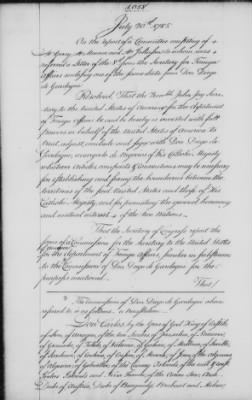 July 20th 1785
On the report of a Committee consisting of
Mr Gerry, Mr Monroe and Mr to whom was
referred a letter of the from the Secretary for Foreign
Affairs notifying one of the from Don Diego
de Gardoqui
Resolved, That the Honble John Jay Secre-
tary to the United States of America for the department
of Foreign Affairs be and he hereby is invested with full
powers in behalf of the United States of America to
treat, adjust, conclude and sign with Don Diego de
Gardoqui, encargado de Negocios of his Catholic Majesty
whatever articles, compacts & Conventions may be necessary
for establishing and fixing the boundaries between the
territories of the said United States and those of His
Catholic Majesty and for promoting the general harmony
and mutual interest of the two Nations.
That the Secretary of Congress report the
form of a Commission for the Secretary to the United States
of America
for the department of Foreign Affairs, similar in
to the Commission of Don Diego de Gardoqui for the
purposes mentioned.
That
The Commission of Don Diego de Gardoqui above
referred to is as follows. a translation.
Don Carlos by the grace of God King of Castile,
of Leon, of Arragon, of the two Sicilies, of Jerusalem, of Navarre,
of Granada, of Toledo, of Valencia, of Galicia, of Mallorca, of Seville,
of Sardinia, of Cordova, of Corsica, of Murcia, of Jaen, of the Algarves
of Algeciras, of Gibraltar, of the Canary Islands, of the east & west
Indies Islands and Terra Firma, of the Ocean Sea, Arch
Duke of Austria, Duke of Burgundy, Brabant and Milan,